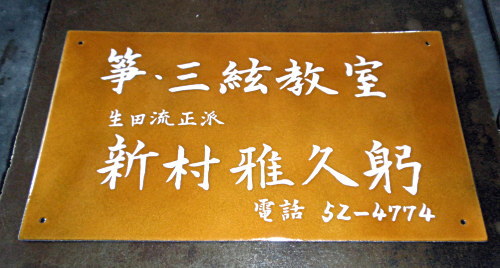 箏・三絃教室
生田流正派
新村雅久躬
電話 52-4774